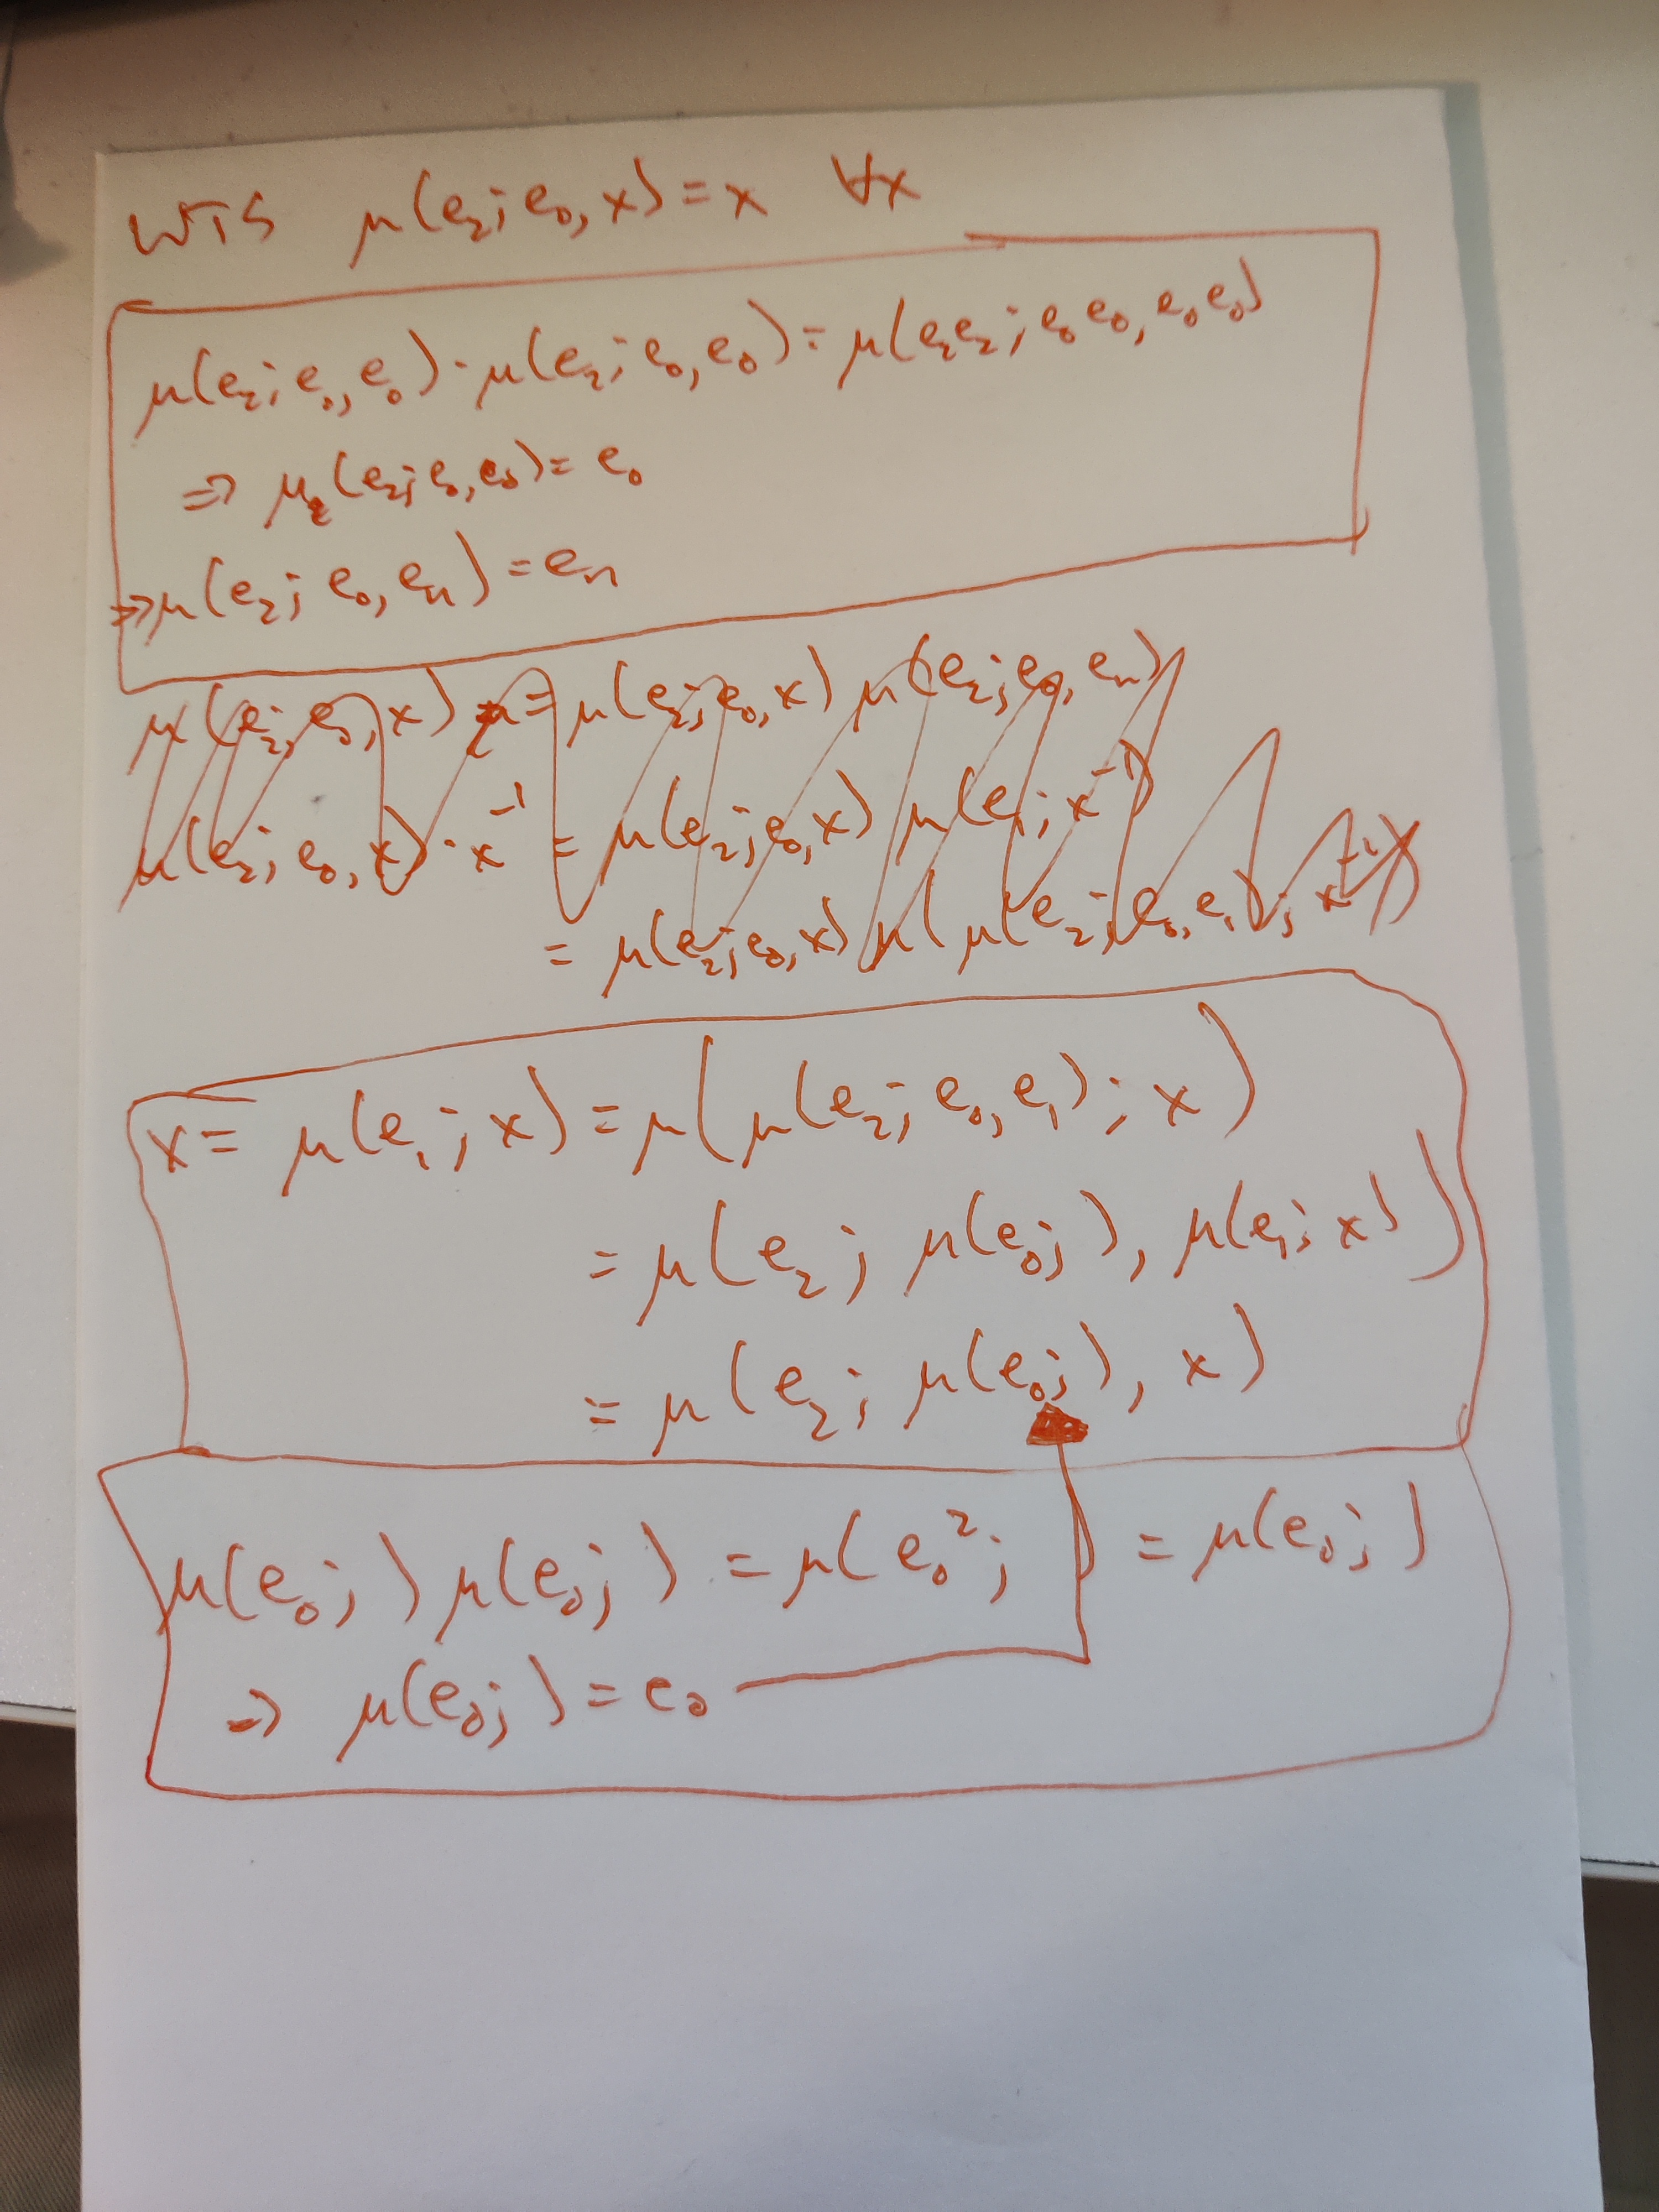 WTS μ(e₂; e₀, x) = x ∀x
μ(e₂; e₀, e₀) · μ(e₂; e₀, e₀) = μ(e₂e₂; e₀e₀, e₀e₀)
⇒ μ₂(e₂; e₀, e₀) = e₀
⇒ μ(e₂; e₀, eₙ) = eₙ
μ(e₂; e₀, x) = μ(e₂; e₀, x) μ(e₂; e₀, eₙ)
μ(e₂; e₀, x) · x⁻¹ = μ(e₂; e₀, x) μ(e₁; x⁻¹)
= μ(e₂; e₀, x) μ(μ(e₂; e₀, e₁); x⁻¹)
x = μ(e₁; x) = μ(μ(e₂; e₀, e₁); x)
= μ(e₂; μ(e₀;), μ(e₁; x))
= μ(e₂; μ(e₀;), x)
μ(e₀;) μ(e₀;) = μ(e₀²;) = μ(e₀;)
⇒ μ(e₀;) = e₀